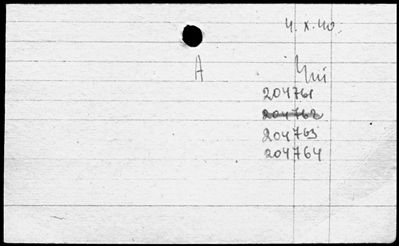 4. X. 40.
A
204761
204762
204763
204764